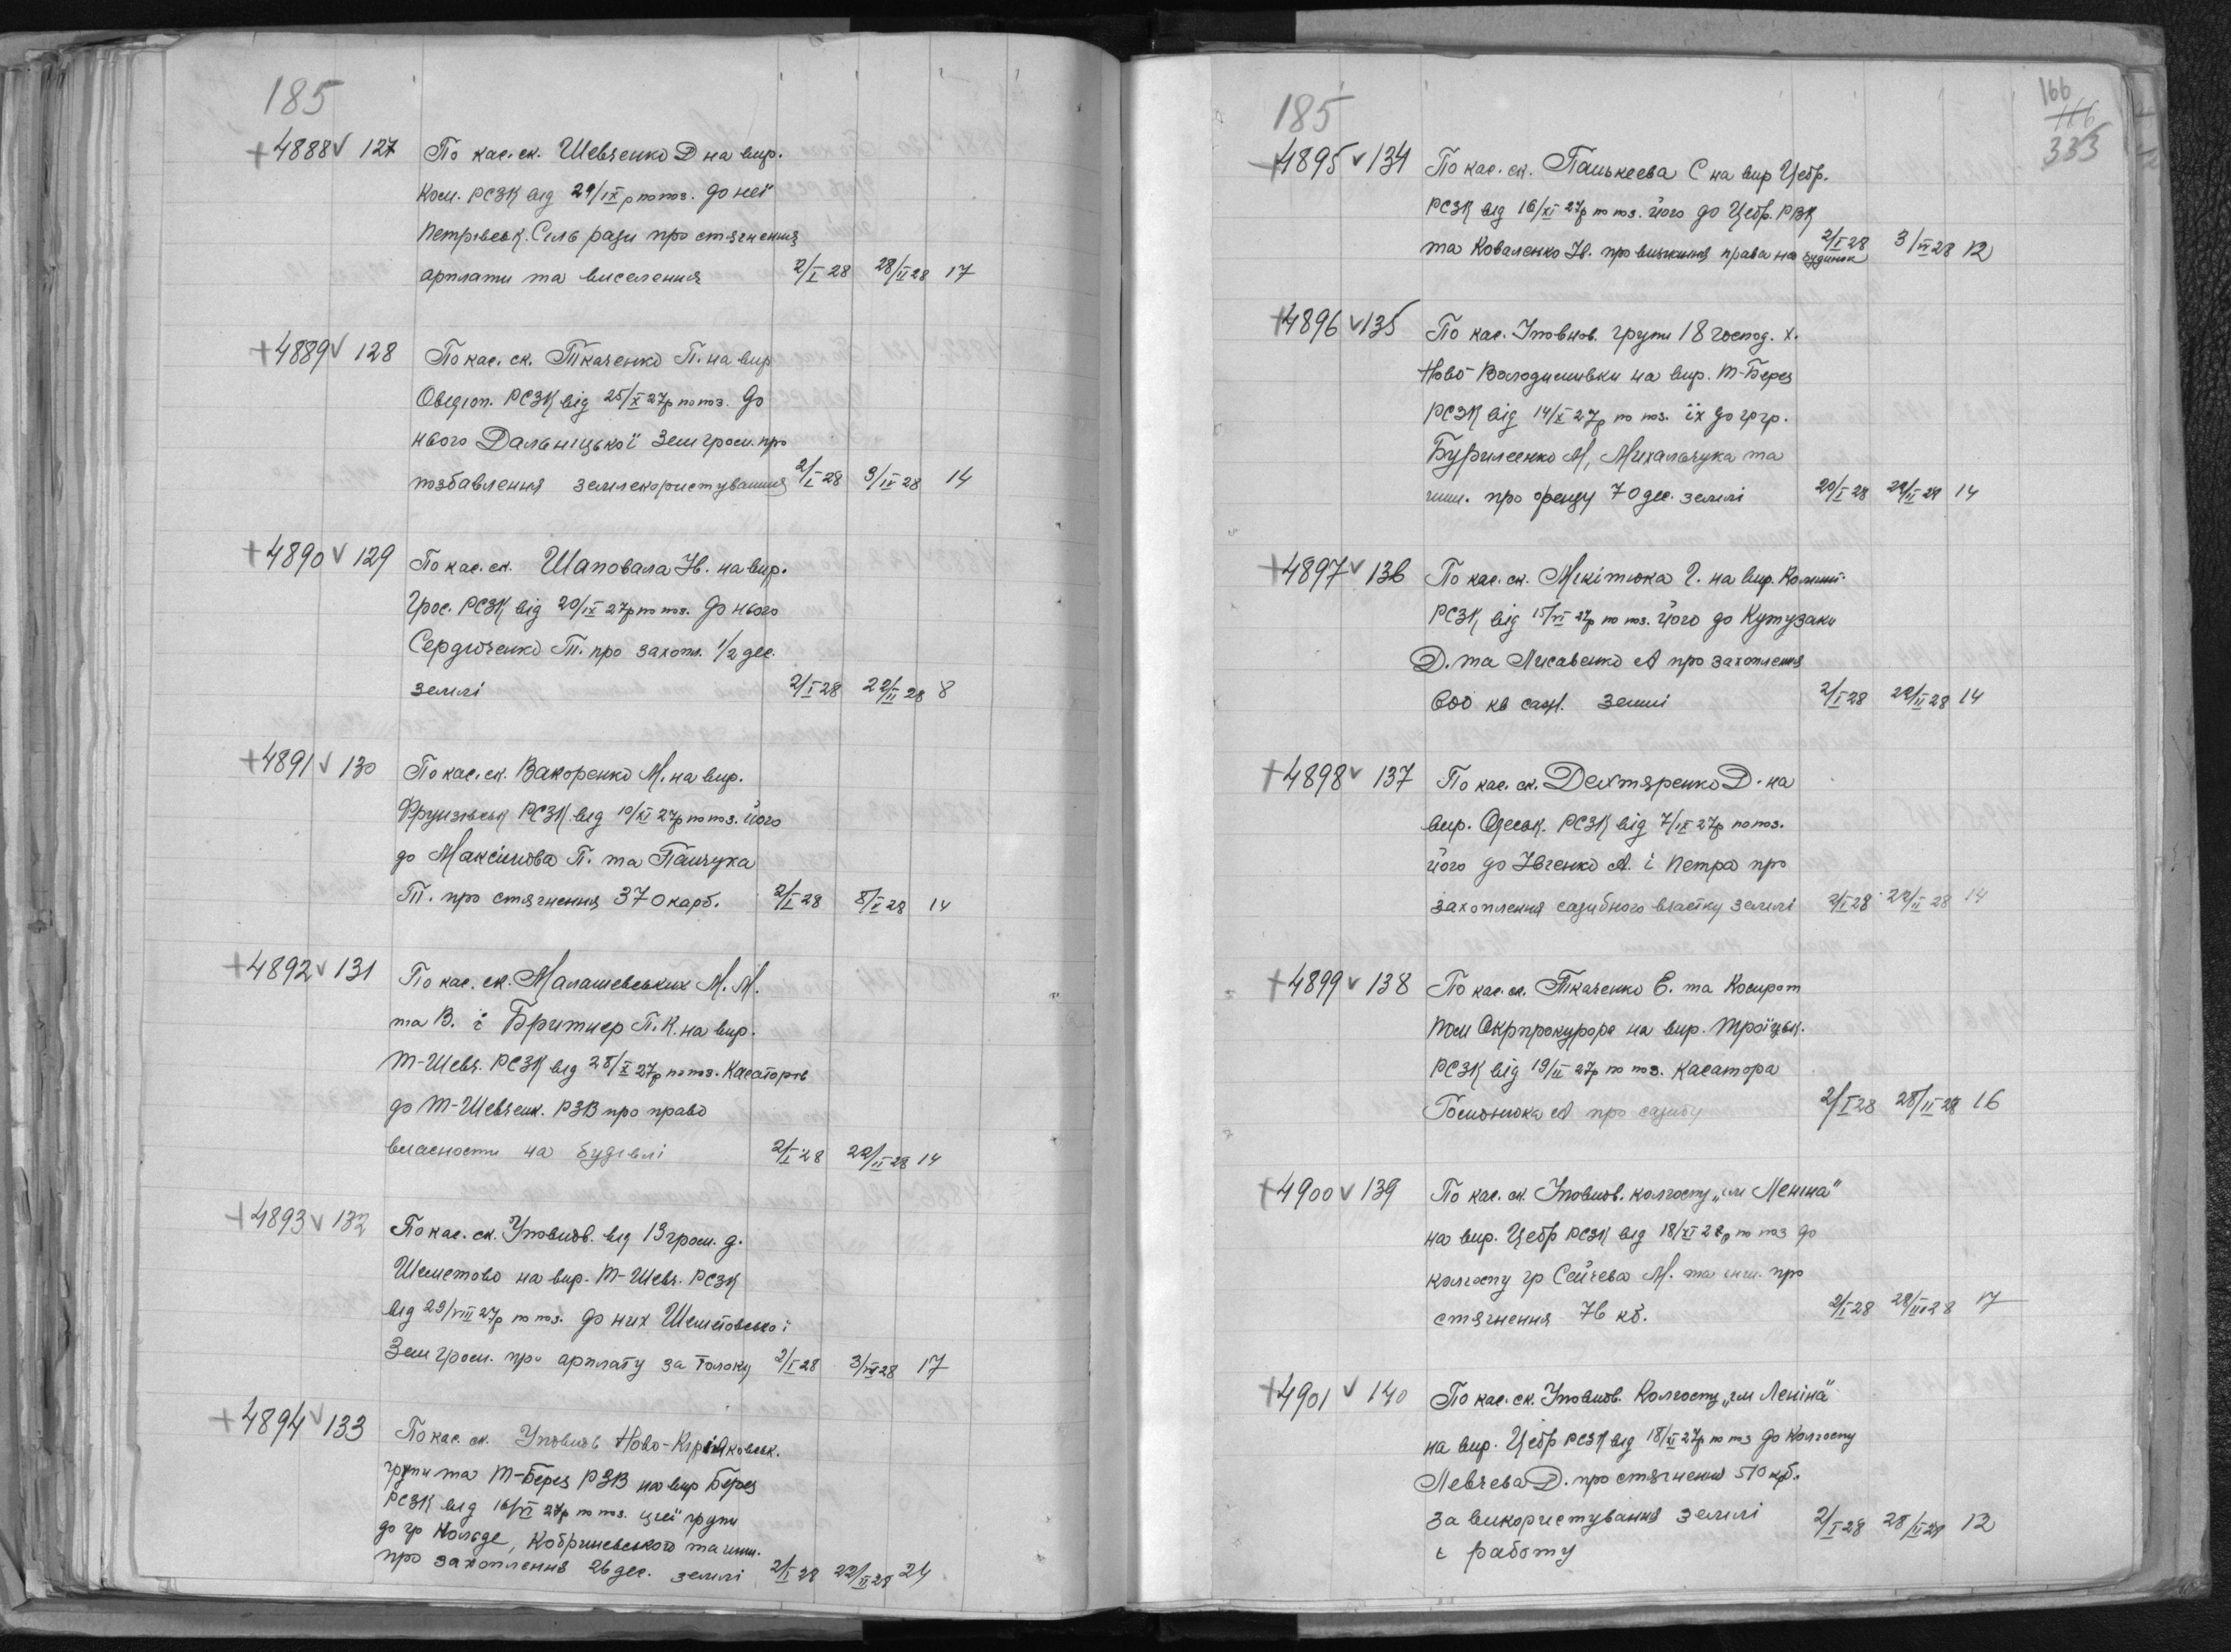 185
+4888 v 127 По кас. ск. Шевченко Д на вир.
Ком. РСЗК від 29/IX р по поз. до неї
Петрівськ. Сель ради про стягнення
арплати та виселення 2/I 28 28/II 28 17
+4889 v 128 По кас. ск. Ткаченко П. на вир
Овідіоп. РСЗК від 25/X 27р по поз. до
нього Дальницької Земгром. про
позбавлення землекористування 2/I 28 3/IV 28 14
+4890 v 129 По кас. ск. Шаповала Ів. на вир.
Грос. РСЗК від 20/IX 27р по поз. до нього
Сердюченко Т. про захопл. 1/2 дес.
землі 2/I 28 22/II 28 8
+4891 v 130 По кас. ск. Вакоренко М. на вир.
Фрунзівськ РСЗК від 10/XI 27р по поз. його
до Максімова П. та Панчука
Т. про стягнення 370 карб. 2/I 28 8/V 28 14
+4892 v 131 По кас. ск. Малашевських М. М.
та В. і Бритнер П. К. на вир.
Т-Шевч. РСЗК від 28/X 27р по поз. Касаторів
до Т-Шевченк. РЗВ про право
власности на будівлі 2/I 28 22/II 28 14
+4893 v 132 По кас. ск. Уповнов. від 13 гром. д.
Шеметово на вир. Т-Шевч. РСЗК
від 29/VIII 27р по поз. до них Шеметовської
Земгром. про арплату за толоку 2/I 28 3/VII 28 17
+4894 v 133 По кас. ск. Уповнов Ново-Кіріяковськ.
групи та Т-Берез РЗВ на вир Берез
РСЗК від 16/VI 27р по поз. цієї групи
до гр Кольде, Кобриневського та инш.
про захоплення 26 дес. землі 2/I 28 22/II 28 24
185
166
116
333
+4895 v 134 По кас. ск. Панькеєва С на вир Цебр.
РСЗК від 16/XI 27р по поз. його до Цебр. РВК
та Коваленко Ів. про визнання права на будинок 2/I 28 3/IV 28 12
+4896 v 135 По кас. Уповнов. групи 18 господ. х.
Ново-Володимивки на вир. Т-Берез
РСЗК від 14/X 27р по поз. їх до гргр.
Бурилсенко М, Михальчука та
инш. про оренду 70 дес. землі 20/I 28 22/II 28 14
+4897 v 136 По кас. ск. Мікітюка Г. на вир.
РСЗК від 15/VI 27р по поз. його до Кутузаки
Д. та Лисавенко А про захоплення
600 кв саж. землі 2/I 28 22/II 28 14
+4898 v 137 По кас. ск. Дехтяренко Д. на
вир. Одеськ. РСЗК від 7/IX 27р по поз.
його до Івченко А. і Петра про
захоплення садибного властку землі 2/I 28 22/II 28 14
+4899 v 138 По кас. ск. Ткаченко Е. та Косирот
Пом Окрпрокурора на вир. Троїцьк.
РСЗК від 19/II 27р по поз. касатора
Гомонюка А про садибу 2/I 28 28/II 28 16
+4900 v 139 По кас. ск. Уповнов. колгоспу „ім Леніна"
на вир. Цебр РСЗК від 18/XI 28р по поз до
колгоспу гр Сейчева М. та инш. про
стягнення 76 кб. 2/I 28 28/III 28 17
+4901 v 140 По кас. ск. Уповнов. Колгоспу „ім Леніна"
на вир. Цебр РСЗК від 18/XI 27р по поз до Колгоспу
Левчева Д. про стягнення 510 крб.
за використування землі 2/I 28 28/II 28 12
і работу